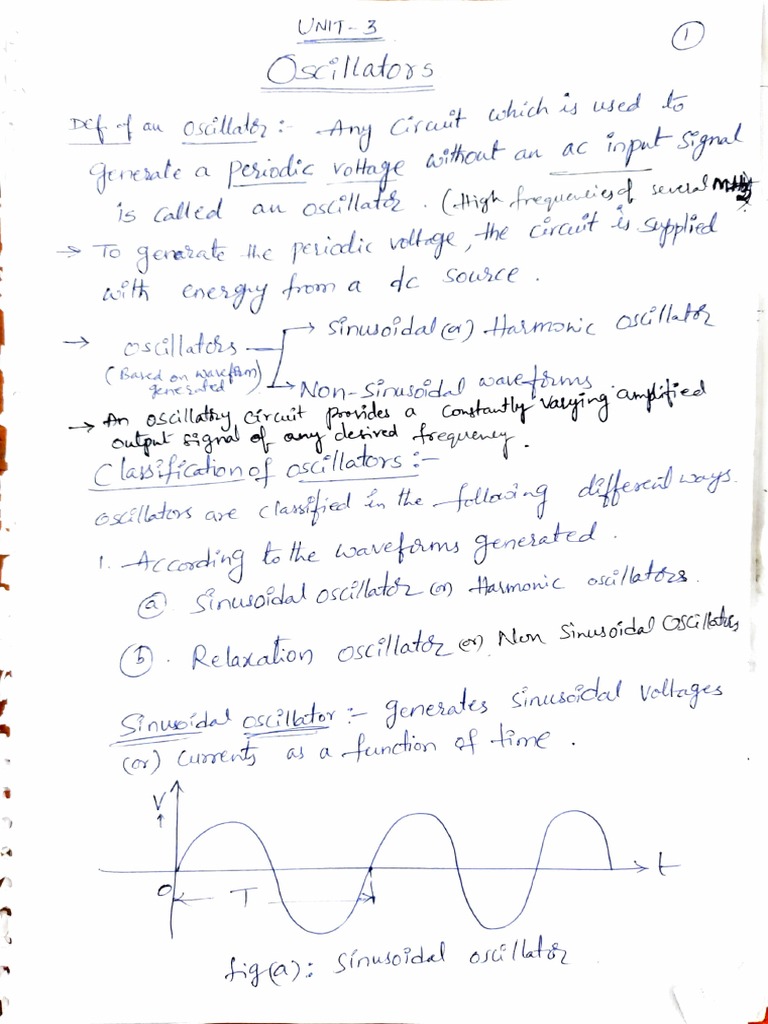 UNIT-3
1
Oscillators
Def of an oscillator:- Any circuit which is used to
generate a periodic voltage without an ac input signal
is called an oscillator. (High frequencies of several MHz
→ To generate the periodic voltage, the circuit is supplied
with energy from a dc source.
→ oscillators → Sinusoidal (or) Harmonic oscillator
(Based on waveform generated) → Non-Sinusoidal waveforms
→ An oscillatory circuit provides a constantly varying amplified
output signal of any desired frequency.
Classification of oscillators:-
oscillators are classified in the following different ways.
1. According to the waveforms generated.
(a). Sinusoidal oscillator (or) Harmonic oscillators.
(b). Relaxation oscillator (or) Non Sinusoidal Oscillators
Sinusoidal oscillator:- generates sinusoidal voltages
(or) currents as a function of time.
V
↑
t
O
T
fig(a): Sinusoidal oscillator